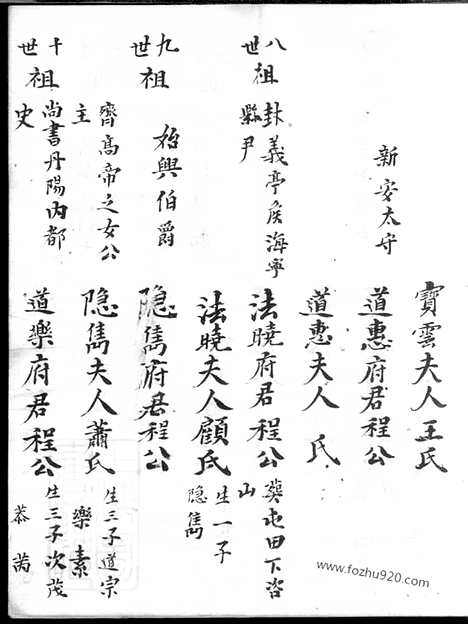 寶雲夫人王氏
新安太守 道惠府君程公
道惠夫人 氏
八世祖 封義亭侯海寧縣尹 法曉府君程公 葬屯田下咨山
法曉夫人顧氏 生一子隐雋
九世祖 始興伯爵 隐雋府君程公
齊高帝之女公主 隐雋夫人蕭氏 生三子道宗樂素
十世祖 尚書丹陽内都史 道樂府君程公 生三子次茂恭茜
www.fozhu920.com